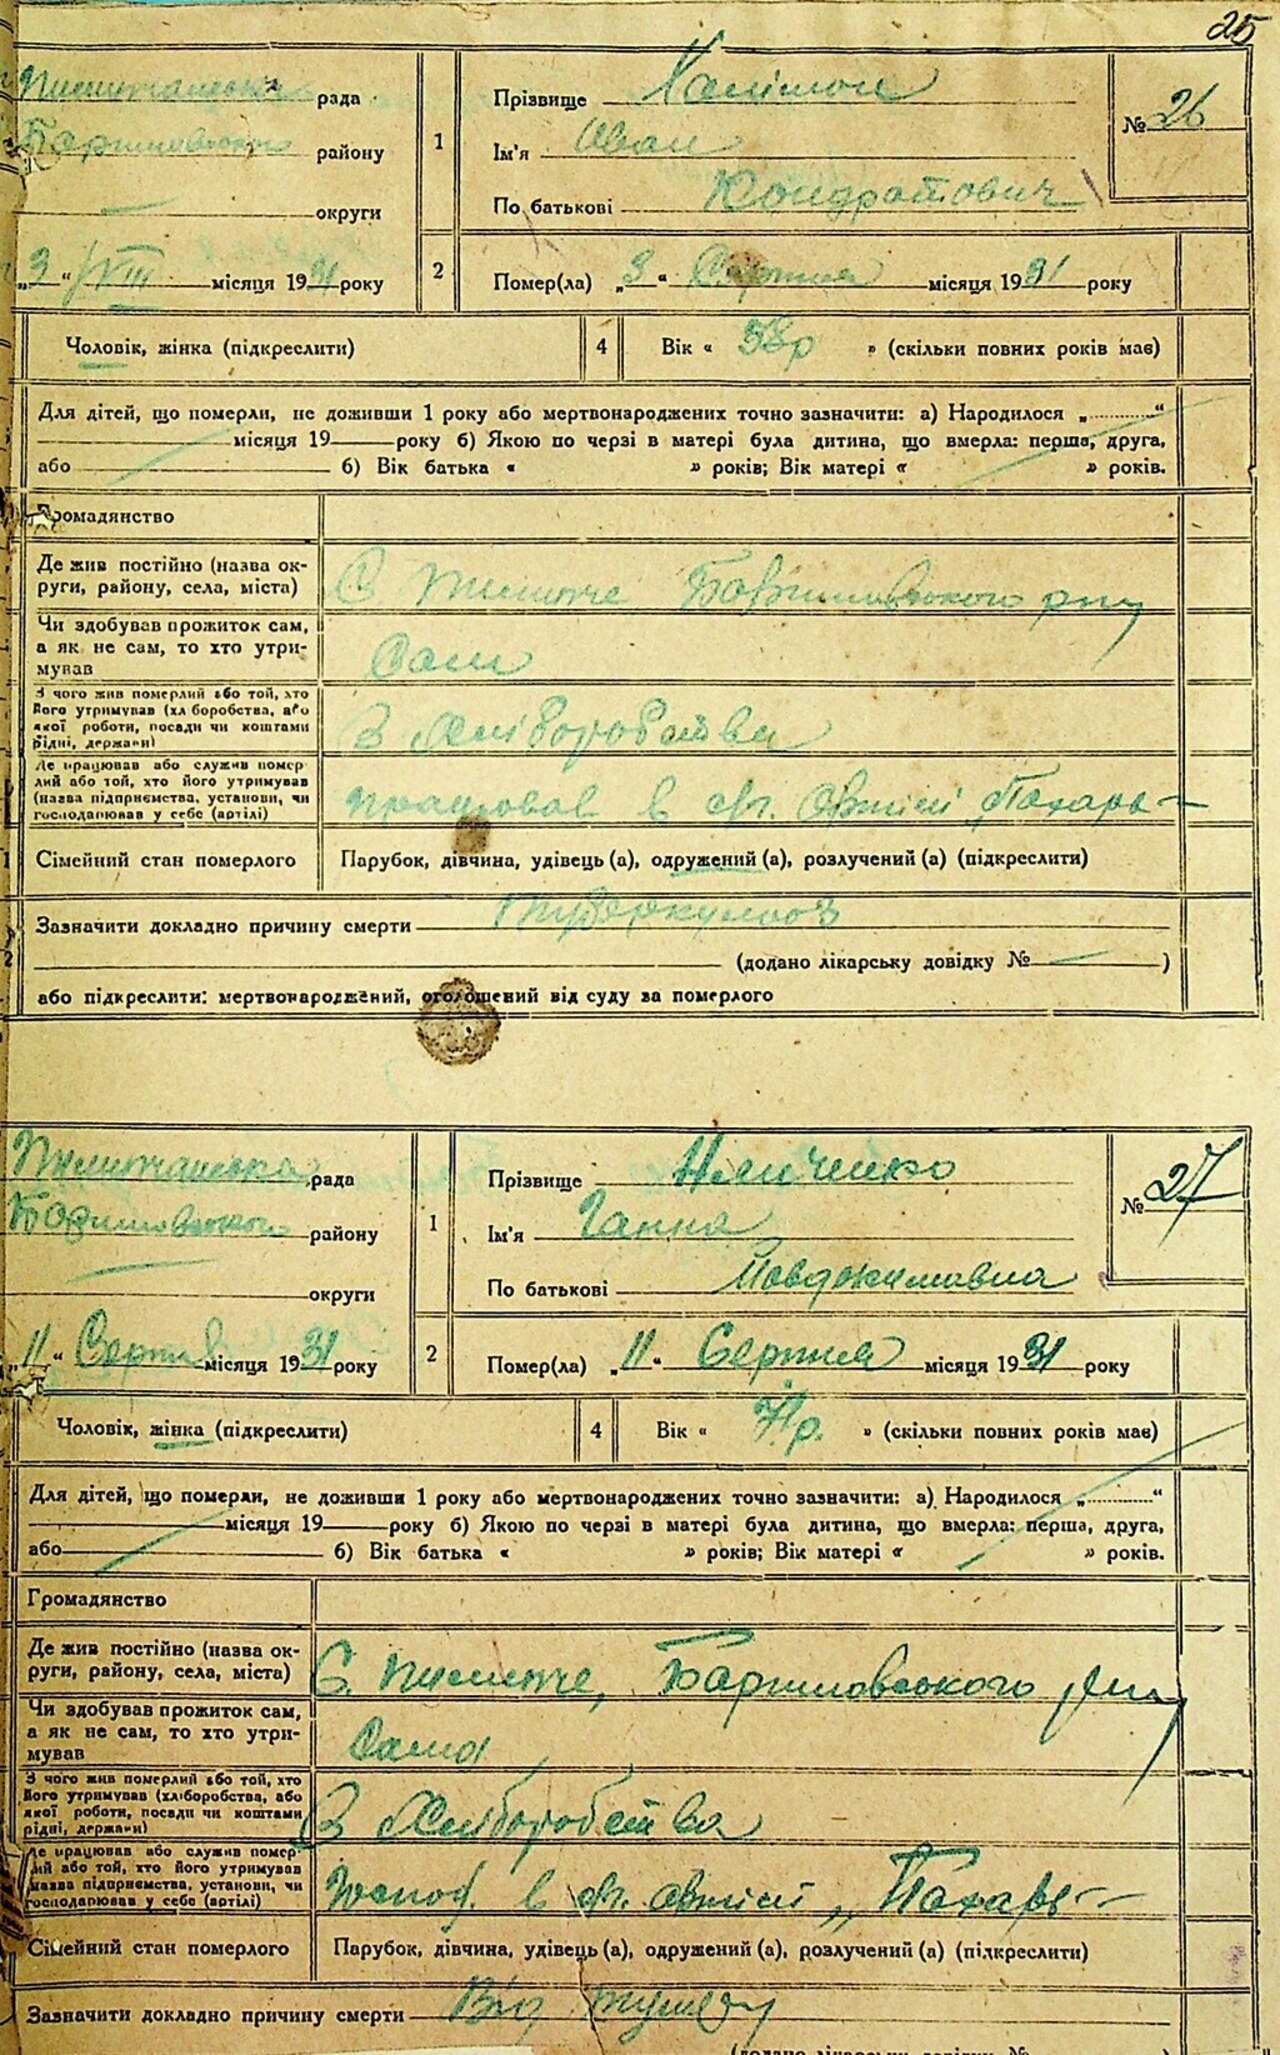 25
рада
району
округи
1
Прізвище
Ім'я Иван
По батькові Кондратович
№ 26
„3“ VIII місяця 1931 року
2
Помер(ла) „3“ Серпня місяця 1931 року
Чоловік, жінка (підкреслити)
4
Вік « 58р » (скільки повних років має)
Для дітей, що померли, не доживши 1 року або мертвонароджених точно зазначити: а) Народилося „..........“
місяця 19 року б) Якою по черзі в матері була дитина, що вмерла: перша, друга,
або б) Вік батька « » років; Вік матері « » років.
Громадянство
Де жив постійно (назва ок-
руги, району, села, міста)
С.
Чи здобував прожиток сам,
а як не сам, то хто утри-
мував
Сам
З чого жив померлий або той, хто
його утримував (хліборобства, або
якої роботи, посади чи коштами
рідні, держави)
З хліборобства
Де працював або служив помер
лий або той, хто його утримував
(назва підприємства, установи, чи
господарював у себе (артілі)
працював в с/г. Артілі „Пахарь“
Сімейний стан померлого
Парубок, дівчина, удівець (а), одружений (а), розлучений (а) (підкреслити)
Зазначити докладно причину смерти Туберкульоз
(додано лікарську довідку № )
або підкреслити: мертвонароджений, оголошений від суду за померлого
рада
району
округи
1
Прізвище
Ім'я Ганна
По батькові
№ 27
„11“ Серпня місяця 1931 року
2
Помер(ла) „11“ Серпня місяця 1931 року
Чоловік, жінка (підкреслити)
4
Вік « 71р. » (скільки повних років має)
Для дітей, що померли, не доживши 1 року або мертвонароджених точно зазначити: а) Народилося „..........“
місяця 19 року б) Якою по черзі в матері була дитина, що вмерла: перша, друга,
або б) Вік батька « » років; Вік матері « » років.
Громадянство
Де жив постійно (назва ок-
руги, району, села, міста)
С.
Чи здобував прожиток сам,
а як не сам, то хто утри-
мував
Сама
З чого жив померлий або той, хто
його утримував (хліборобства, або
якої роботи, посади чи коштами
рідні, держави)
З хліборобства
Де працював або служив помер
лий або той, хто його утримував
(назва підприємства, установи, чи
господарював у себе (артілі)
в с/г. артілі „Пахарь“
Сімейний стан померлого
Парубок, дівчина, удівець (а), одружений (а), розлучений (а) (підкреслити)
Зазначити докладно причину смерти Від
(додано лікарську довідку № )